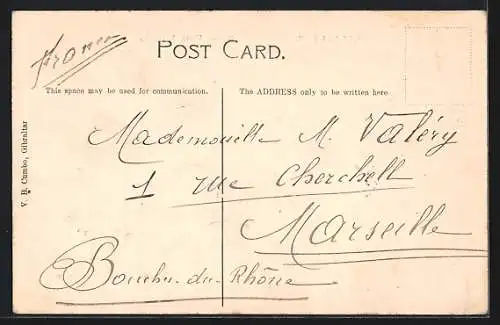 France
POST CARD.
This space may be used for communication.
The ADDRESS only to be written here
V. B. Cumbo, Gibraltar
Mademoiselle M. Valéry
1 rue Cherchell
Marseille
Bouches-du-Rhône